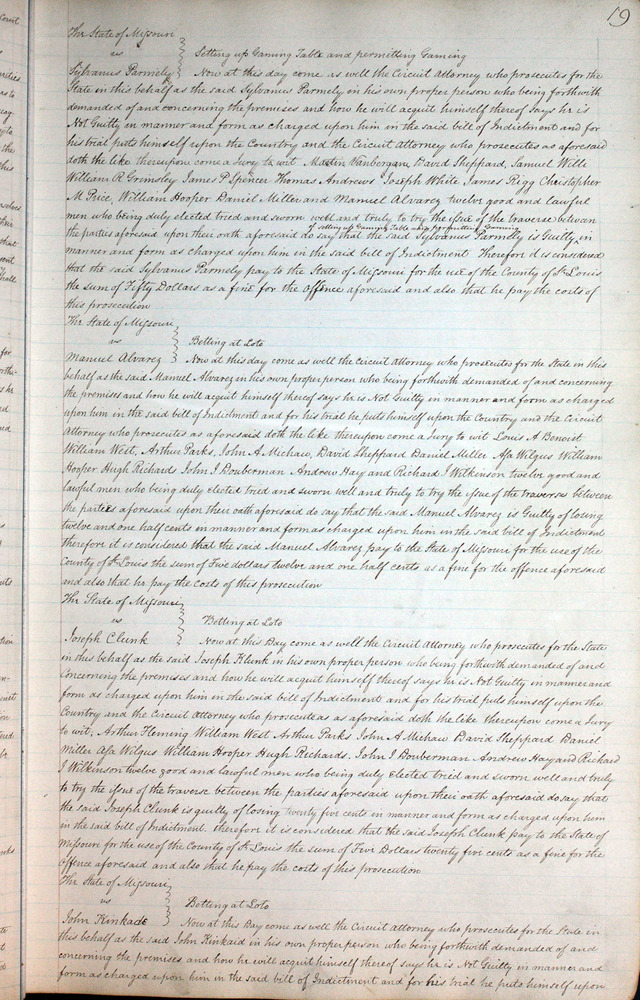 19
The State of Missouri
vs } Setting up Gaming Table and permitting Gaming
Sylvanus Parmely } Now at this day come as well the Circuit Attorney who prosecutes for the
State in this behalf as the said Sylvanus Parmely in his own proper person who being forthwith
demanded of and concerning the premises and how he will acquit himself thereof says he is
Not Guilty in manner and form as charged upon him in the said bill of Indictment and for
his trial puts himself upon the Country and the Circuit Attorney who prosecutes as aforesaid
doth the like thereupon come a Jury to wit Martin Vanbergan, David Sheppard, Samuel Wille
William R Grimsley James P Spencer Thomas Andrews Joseph White James Rigg Christopher
M Price, William Hooper Daniel Miller and Manuel Alvarez twelve good and lawful
men who being duly elected tried and sworn well and truly to try the issue of the traverse between
of setting up Gaming Table and permitting Gaming
the parties aforesaid upon their oath aforesaid do say that the said Sylvanus Parmely is Guilty in
manner and form as charged upon him in the said bill of Indictment Therefore it is considered
that the said Sylvanus Parmely pay to the State of Missouri for the use of the County of St Louis
the sum of Fifty Dollars as a fine for the offence aforesaid and also that he pay the costs of
this prosecution
The State of Missouri
vs } Betting at Loto
Manuel Alvarez } Now at this day come as well the Circuit Attorney who prosecutes for the State in this
behalf as the said Manuel Alvarez in his own proper person who being forthwith demanded of and concerning
the premises and how he will acquit himself thereof says he is Not Guilty in manner and form as charged
upon him in the said bill of Indictment and for his trial he puts himself upon the Country and the Circuit
Attorney who prosecutes as aforesaid doth the like thereupon come a Jury to wit Louis A Benoist
William West, Arthur Parks, John A Michaw, David Sheppard Daniel Miller Asa Wilgus William
Hooper Hugh Richards John I Douberman Andrew Hay and Richard I Wilkinson twelve good and
lawful men who being duly elected tried and sworn well and truly to try the issue of the traverse between
the parties aforesaid upon their oath aforesaid do say that the said Manuel Alvarez is Guilty of losing
twelve and one half cents in manner and form as charged upon him in the said bill of Indictment
therefore it is considered that the said Manuel Alvarez pay to the State of Missouri for the use of the
County of St Louis the sum of Five dollars twelve and one half cents as a fine for the offence aforesaid
and also that he pay the costs of this prosecution
The State of Missouri
vs } Betting at Loto
Joseph Clunk } Now at this Day come as well the Circuit Attorney who prosecutes for the State
in this behalf as the said Joseph Klunk in his own proper person who being forthwith demanded of and
Concerning the premises and how he will acquit himself thereof says he is Not Guilty in manner and
form as charged upon him in the said bill of Indictment and for his trial puts himself upon the
Country and the Circuit Attorney who prosecute as as aforesaid doth the like thereupon come a Jury
to wit, Arthur Fleming William West Arthur Parks John A Michaw David Sheppard Daniel
Miller Asa Wilgus William Hooper Hugh Richards, John I Douberman Andrew Hay and Richard
I Wilkinson twelve good and lawful men who being duly elected tried and sworn well and truly
to try the issue of the traverse between the parties aforesaid upon their oath aforesaid do say that
the said Joseph Clunk is guilty of losing twenty five cents in manner and form as charged upon him
in the said bill of Indictment. therefore it is considered that the said Joseph Clunk pay to the State of
Missouri for the use of the County of St Louis the sum of Five Dollars twenty five cents as a fine for the
offence aforesaid and also that he pay the costs of this prosecution
The State of Missouri
vs } Betting at Loto
John Kinkade } Now at this Day come as well the Circuit Attorney who prosecutes for the State in
this behalf as the said John Kinkaid in his own proper person who being forthwith demanded of and
concerning the premises and how he will acquit himself thereof says he is Not Guilty in manner and
form as charged upon him in the said bill of Indictment and for his trial he puts himself upon